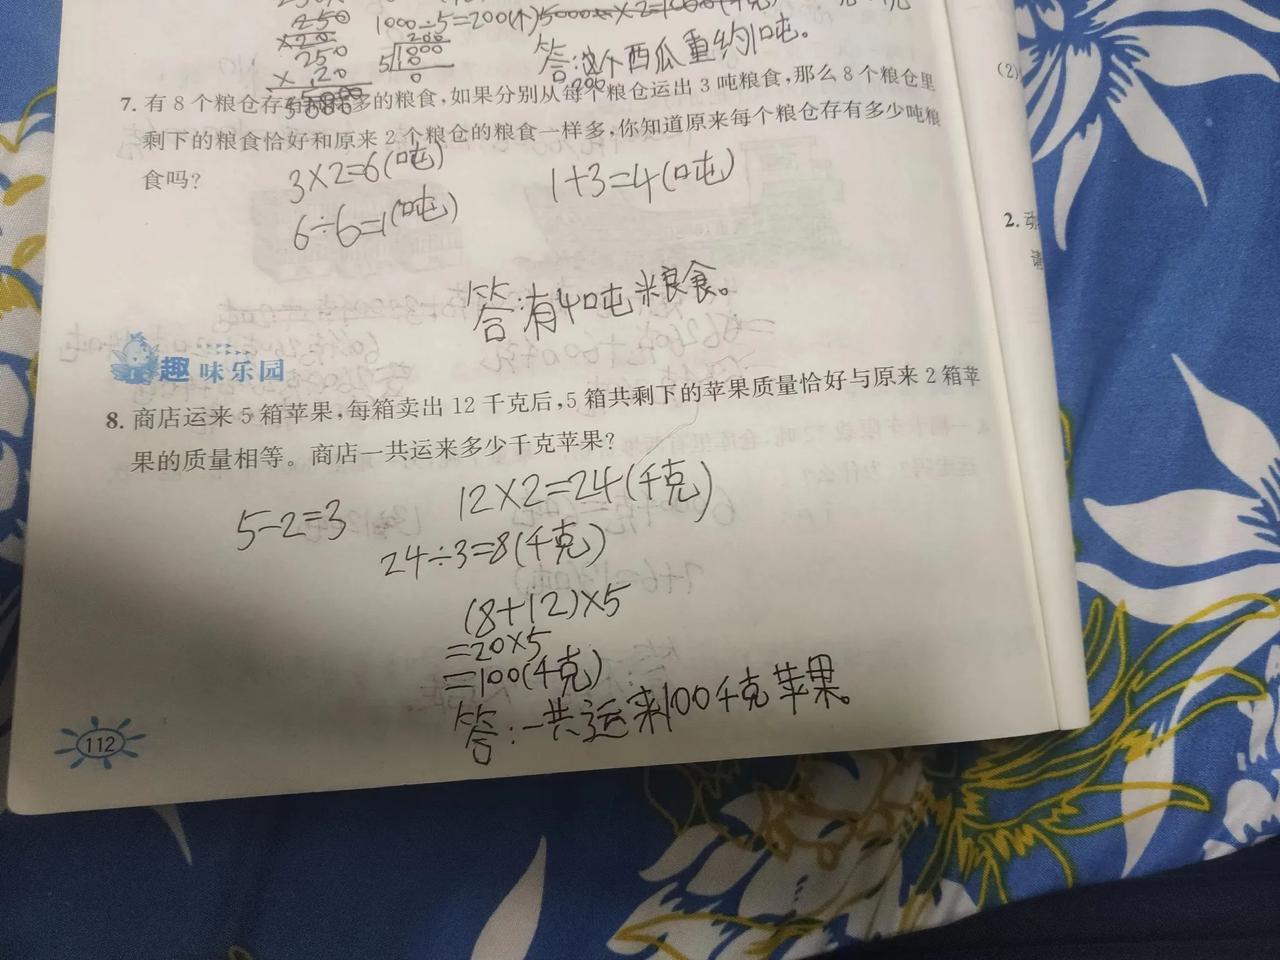 250
1000÷5=200(个)
×20
250
200
5 1000
0
答:这个西瓜重约1吨。
×20
5000
(2)
7. 有8个粮仓存有同样多的粮食,如果分别从每个粮仓运出3吨粮食,那么8个粮仓里
剩下的粮食恰好和原来2个粮仓的粮食一样多,你知道原来每个粮仓存有多少吨粮
食吗?
3×2=6(吨)
1+3=4(吨)
6÷6=1(吨)
答:有4吨粮食。
2.
请
趣味乐园
8. 商店运来5箱苹果,每箱卖出12千克后,5箱共剩下的苹果质量恰好与原来2箱苹
果的质量相等。商店一共运来多少千克苹果?
5-2=3
12×2=24(千克)
24÷3=8(千克)
(8+12)×5
=20×5
=100(千克)
答:一共运来100千克苹果。
112